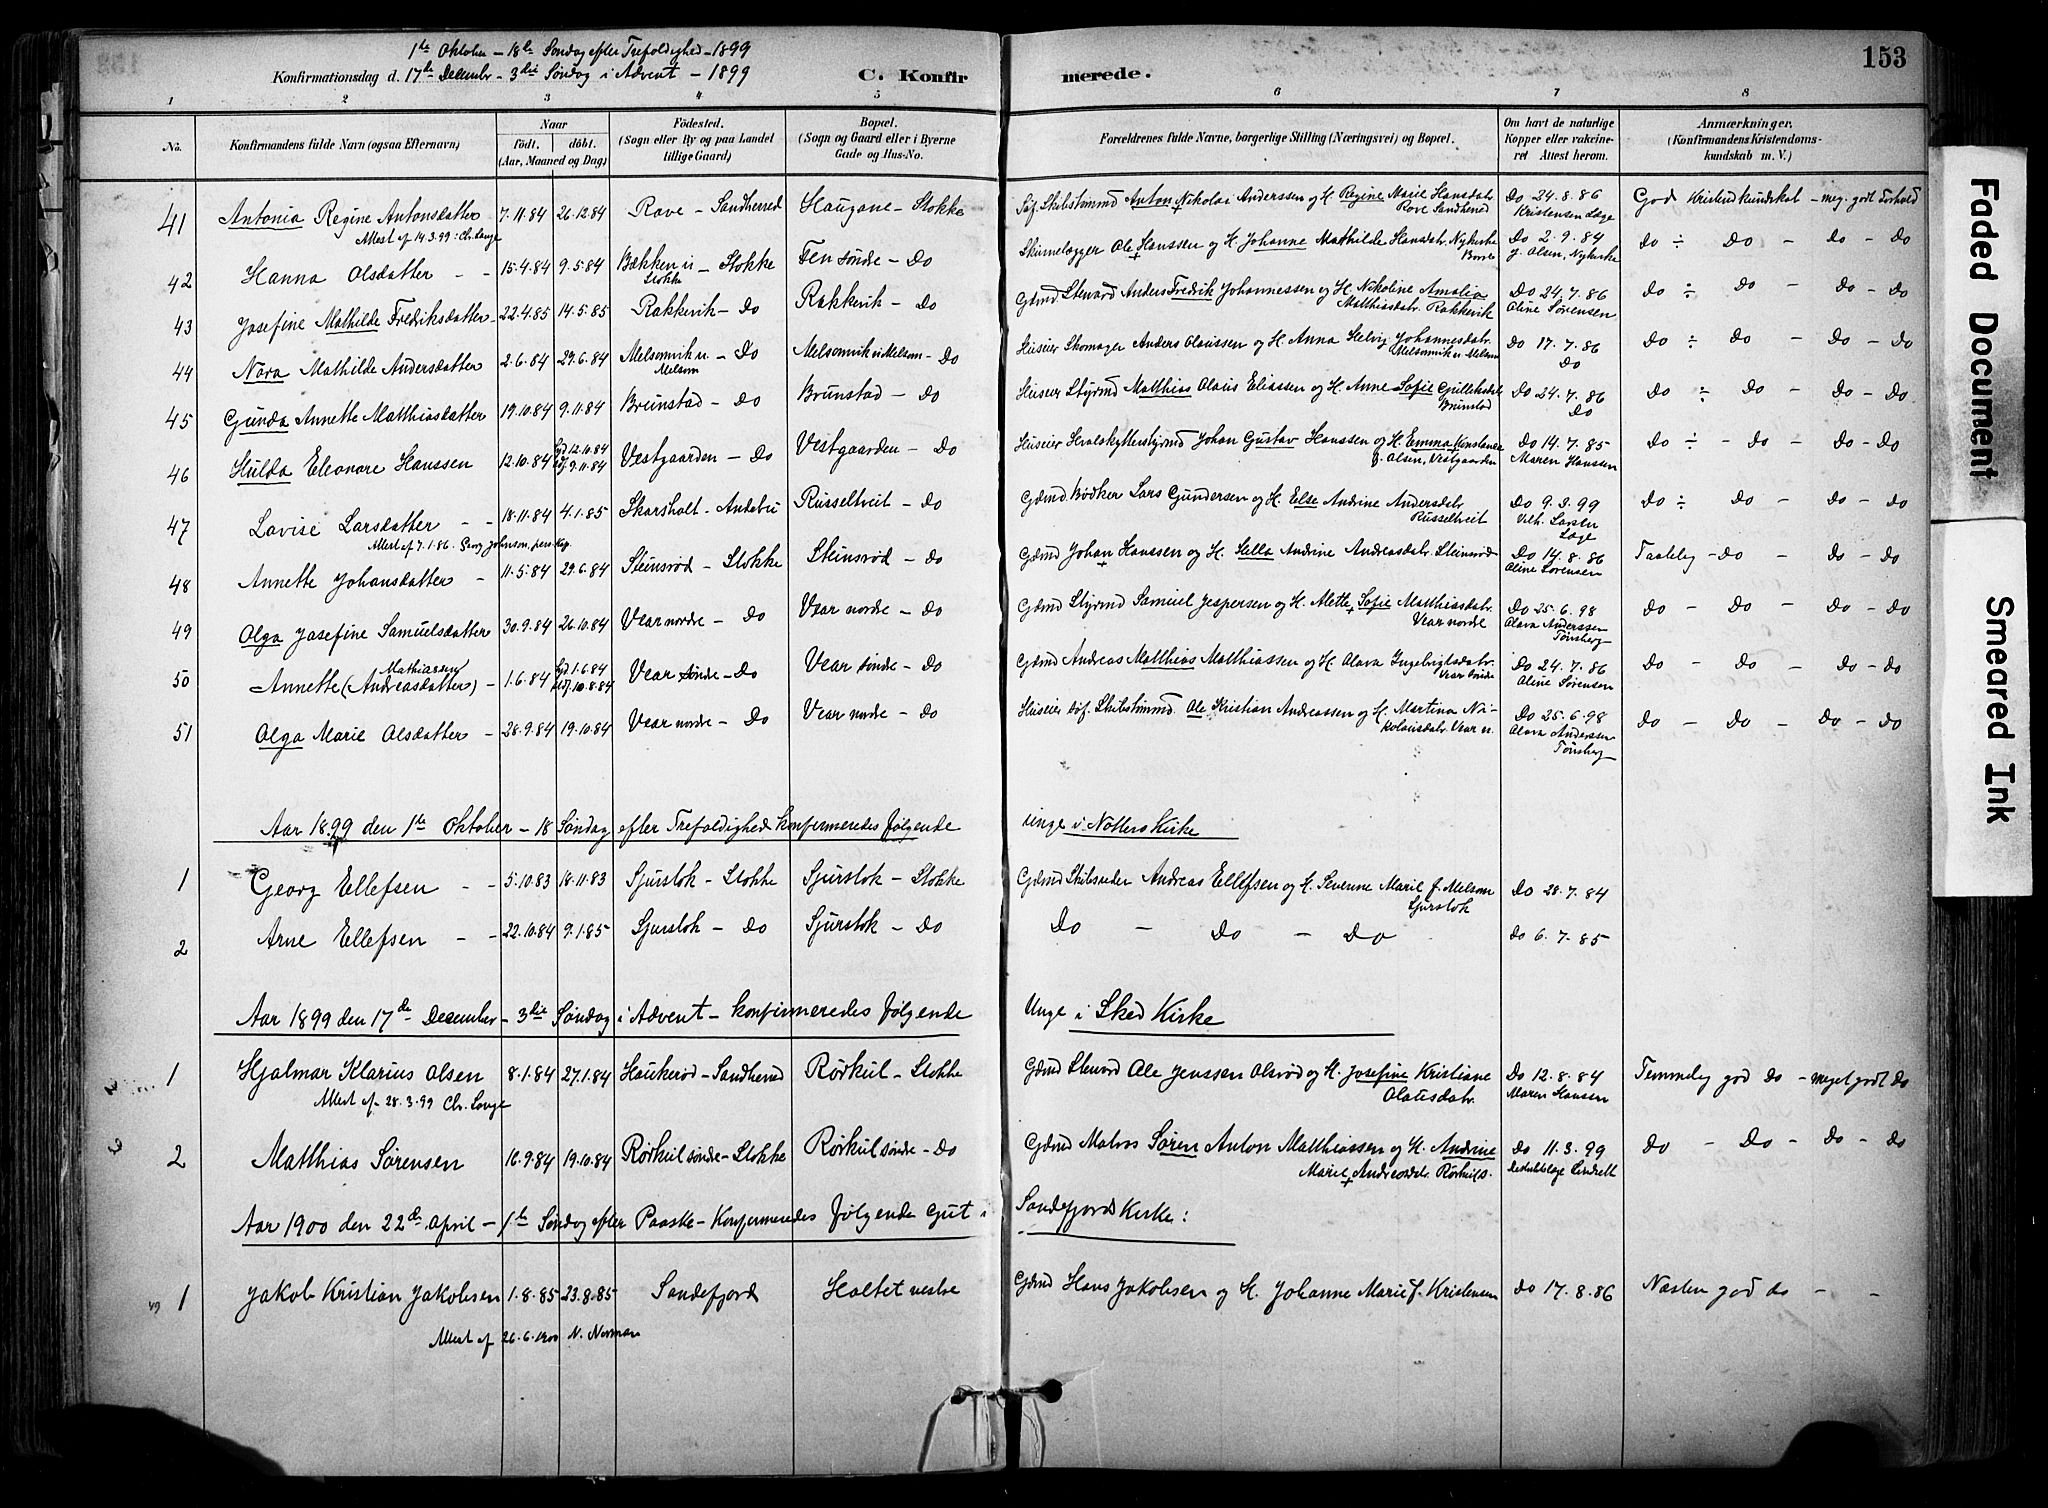 153
1ste Oktober – 18de Søndag efter Trefoldighed – 1899
Konfirmationsdag d. 17de December – 3die Søndag i Advent – 1899
C. Konfirmerede.
1 2 3 4 5 6 7 8
No. Konfirmandens fulde Navn (ogsaa Efternavn) Naar født. døbt. (Aar, Maaned og Dag) Fødested. (Sogn eller By og paa Landet tillige Gaard) Bopæl. (Sogn og Gaard eller i Byerne Gade og Hus-No. Forældrenes fulde Navne, borgerlige Stilling (Næringsvei) og Bopæl. Om havt de naturlige Kopper eller vakcineret Attest herom. Anmærkninger. (Konfirmandens Kristendomskundskab m. V.)
41 Antonia Regine Antonsdatter 7.11.84 26.12.84 Rove – Sandherred Haugane – Stokke Søf. Skibstømmd Anton Nikolai Anderssen og H. Regine Marie Hansdatr. Rove Sandherred Do 24.8.86 Kristensen Læge God Kristend kundskab – meg. godt Forhold
Attest af 14.3.99: Chr. Lange
42 Hanna Olsdatter – – 15.4.84 9.5.84 Bækken u Stokke – Stokke Fen søndre – Do Skinnelægger Ole Hanssen og H. Johanne Mathilde Hansdatr. Nykirke Borre Do 2.9.84 J. Olsen, Nykirke do ÷ do – do – do
43 Josefine Mathilde Fredriksdatter – 22.4.85 14.5.85 Rakkevik – Do Rakkevik – Do Gdmd Steward Anders Fredrik Johannessen og H. Nikoline Amalia Matthiasdatr. Rakkevik Do 24.7.86 Aline Sørensen do ÷ do – do – do
44 Nora Mathilde Andersdatter 2.6.84 29.6.84 Melsomvik u. Melsom – Do Melsomvik u. Melsom – Do Huseier Skomager Anders Olaussen og H. Anna Helvig Johannesdatr. Melsomvik u. Melsom Do 17.7.86 Do do ÷ do – do – do
45 Gunda Annette Matthiasdatter 19.10.84 9.11.84 Brunstad – Do Brunstad – Do Huseier Styrmd Matthias Olaus Eliassen og H. Anne Sofie Gulliksdatr Brunstad Do 24.7.86 Do do ÷ do – do – do
46 Hulda Eleonore Hanssen 12.10.84 hjd 12.10.84 stdf. 9.11.84 Vestgaarden – Do Vestgaarden – Do Huseier Hvalskytterstyrmd Johan Gustav Hanssen og H. Emma Konstance f. Olsen, Vestgaarden Do 14.7.85 Maren Hanssen do ÷ – do – do – do
47 Lovise Larsdatter – – 18.11.84 4.1.85 Skarsholt – Andebu Russeltveit – Do Gdmd Bødker Lars Gundersen og H. Else Andrine Andersdatr. Russeltveit Do 9.3.99 Vilh. Larsen Læge do ÷ do – do – do
Attest af 7.1.86. Georg Johnson, pers. Kap.
48 Annette Johansdatter – 11.5.84 29.6.84 Steinsrød – Stokke Steinsrød – Do Gdmd Johan Hanssen og H. Hella Andrine Andreasdatr. Steinsrød Do 14.8.86 Aline Sørensen Taalelig – do – do – do
49 Olga Josefine Samuelsdatter 30.9.84 26.10.84 Vear nordre – Do Vear nordre – Do Gdmd Styrmd Samuel Jespersen og H. Alette Sofie Matthiasdatr. Vear nordre Do 25.6.98 Olava Anderssen Tønsberg do – do – do – do
50 Annette (Andreasdatter) Mathiassen – 1.6.84 hjd 1.6.84 stdf. 10.8.84 Vear søndre – Do Vear søndre – Do Gdmd Andreas Matthias Matthiassen og H. Olava Ingebrigtsdatr. Vear søndre Do 24.7.86 Aline Sørensen do – do – do – do
51 Olga Marie Olsdatter – 28.9.84 19.10.84 Vear nordre – Do Vear nordre – Do Huseier Søf. Skibstømmd. Ole Kristian Andreassen og H. Martina Nikolaisdatr. Vear n. Do 25.6.98 Olava Anderssen Tønsberg do – do – do – do
Aar 1899 den 1ste Oktober – 18 Søndag efter Trefoldighed Konfirmeredes følgende unge i Nøtterø Kirke
1 Georg Ellefsen – – 5.10.83 18.11.83 Sjurstok – Stokke Sjurstok – Stokke Gdmd Skibsreder Andreas Ellefsen og H. Severine Marie f. Melsom Sjurstok Do 28.7.84
2 Arne Ellefsen – – 22.10.84 9.1.85 Sjurstok – Do Sjurstok – Do Do – Do – Do do 6.7.85
Aar 1899 den 17de December – 3die Søndag i Advent – Konfirmeredes følgende Unge i Skeë Kirke
1 Hjalmar Klarius Olsen 8.1.84 27.1.84 Haukerød – Sandherred Rørkul – Stokke Gdmd Steward Ole Jenssen Olsrød og H. Josefine Kristiane Olausdatr. Do 12.8.84 Maren Hanssen Temmelig god do – meget godt do
Attest af 28.3.99 Chr. Lange
2 Matthias Sørensen 16.9.84 19.10.84 Rørkul søndre – Stokke Rørkul søndre – Do Gdmd Matros Søren Anton Matthiassen og H. Andrine Marie Andreasdatr Rørkul s. Do 11.3.99 do – do – do – do
Aar 1900 den 22de April – 1ste Søndag efter Paaske – Konfirmeredes følgende Gut i Sandefjords Kirke:
1 Jakob Kristian Jakobsen 1.8.85 23.8.85 Sandefjord Holtet vestre Gdmd Hans Jakobsen og H. Johanne Marie f. Kristensen Do 17.8.86 Næsten god do – –
Attest af 26.6.1900 N. Norman
Faded Document
Smeared Ink